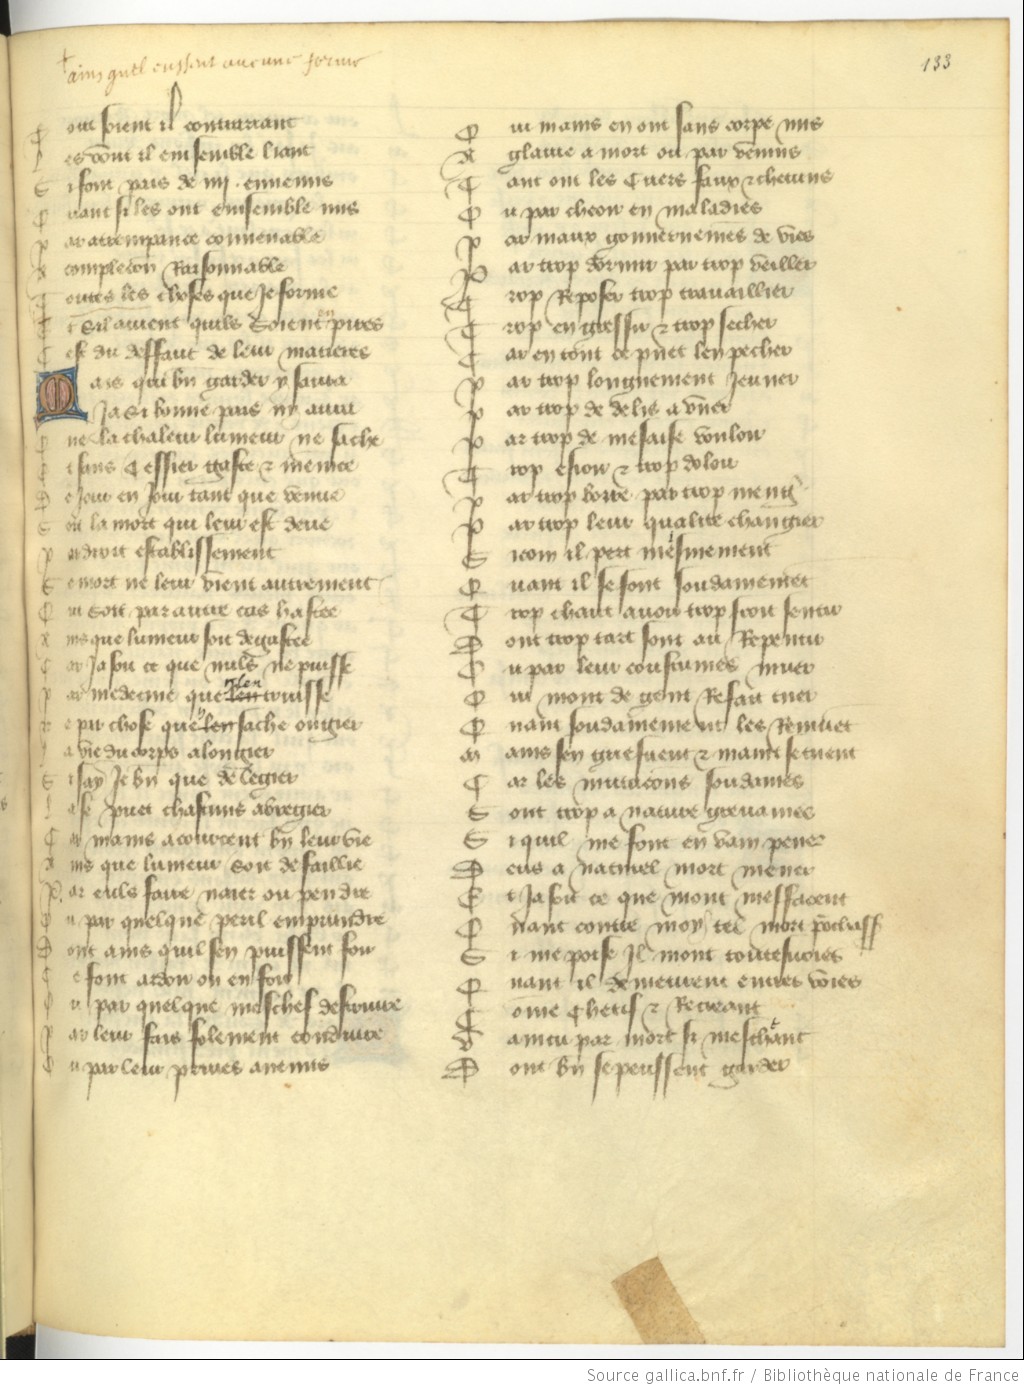 + ains quel eussent aucune forme
133
out soient il contrariant
es vont il ensemble liant
S i font pais de iiij. ennemis
Q uant si les ont ensemble mis
P ar atrempance convenable
A complecon Raisonnable
T outes les choses que Je forme
t Sil avient quils Soient pires
C est du deffaut de leur matieres
M ais qui bn garder y saura
Ja si bonne pais ny aura
ne la chaleur lumeur ne sache
t sans Cessier gaste & menice
D e Jour en Jour tant que venue
S oit la mort qui leur est deue
P ar droit establissement
C mort ne leur vient autrement
Q ui Soit par autre cas hastee
A ins que lumeur soit degastee
C ar Ja soit ce que nuls ne puisse
P ar medecine que len truisse
N e pur chose que len sache ongier
L a vie du corps alongier
S i say Je bn que de legier
L a se puet chascuns abregier
C ar mains acourcent bn leur vie
A ins que lumeur Soit defaillie
P ar euls faire naier ou pendre
O u par quelque peril emprendre
D ont ains quil sen puissent fouir
S e font ardoir ou enfouir
O u par quelque meschef destruire
P ar leur fais folement conduire
O u par leur prives anemis
Q ui mains en ont sans corpe mis
A glaive a mort ou par venins
T ant ont les Cuers faux & chenins
O u par cheoir en maladies
P ar maux gouvernemes de vies
P ar trop dormir par trop veiller
T rop Reposer trop travaillier
T rop engressir & trop secher
C ar en tout ce puet len pecher
P ar trop longuement Jeuner
P ar trop de delis a uner
P ar trop de mesaise vouloir
T rop esioir & trop doloir
P ar trop boire par trop meng
P ar trop leur qualite changier
S icom il pert mesmement
Q uant il se font soudainemet
T rop chaut avoir trop froit sentir
D ont trop tart sont au Repentir
O u par leur coustumes muer
Q ui mont de gent Refait tuer
Q uant soudainement les Remuet
M ains sen griefvent & maint se tuent
C ar les mutacons soudaines
S ont trop a nature grevaines
S i quil me font en vain pener
D eus a naturel mort mener
E t Ja soit ce que mont meffacent
Q uant contre moy tel mort pchass
S i me poise Il mont toutesvoies
Q uant il demeurent entres voies
C ome Chetif & Recreant
V aincu par mort si meschant
D ont bn se peussent garder
Source gallica.bnf.fr / Bibliothèque nationale de France